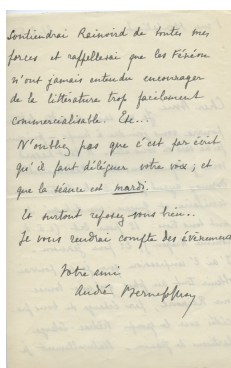 Soutiendrai Rainoird de toutes mes
forces et rappellerai que les Fénéon
n'ont jamais entendu encourager
de la littérature trop facilement
commercialisable. Etc...
N'oubliez pas que c'est par écrit
qu'il faut déléguer votre voix ; et
que la séance est mardi.
Et surtout reposez-vous bien..
Je vous rendrai compte des évènements
Votre ami
André